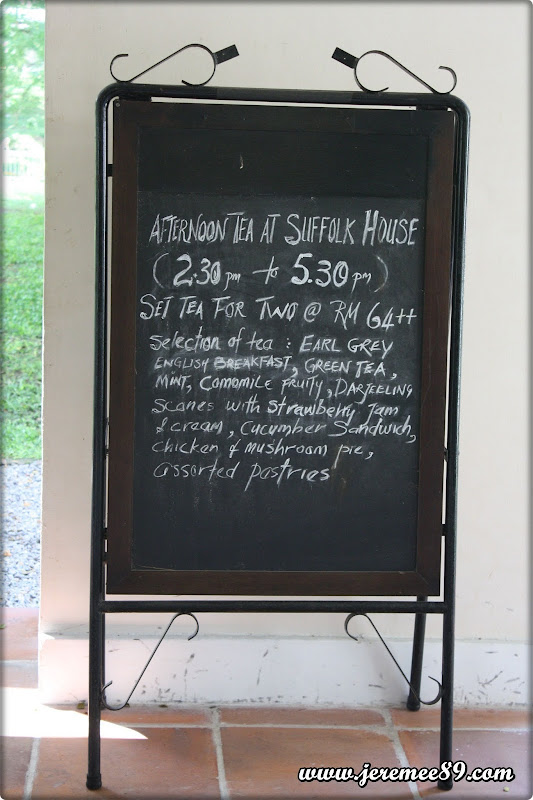 AFTERNOON TEA AT SUFFOLK HOUSE
(2:30 pm to 5.30 pm)
SET TEA FOR TWO @ RM 64++
Selection of tea : EARL GREY
ENGLISH BREAKFAST, GREEN TEA,
MINT, COMOMILE FRUITY, DARJEELING
Scones with strawberry Jam
& cream, Cucumber Sandwich,
chicken & mushroom pie,
assorted pastries
www.jeremee89.com